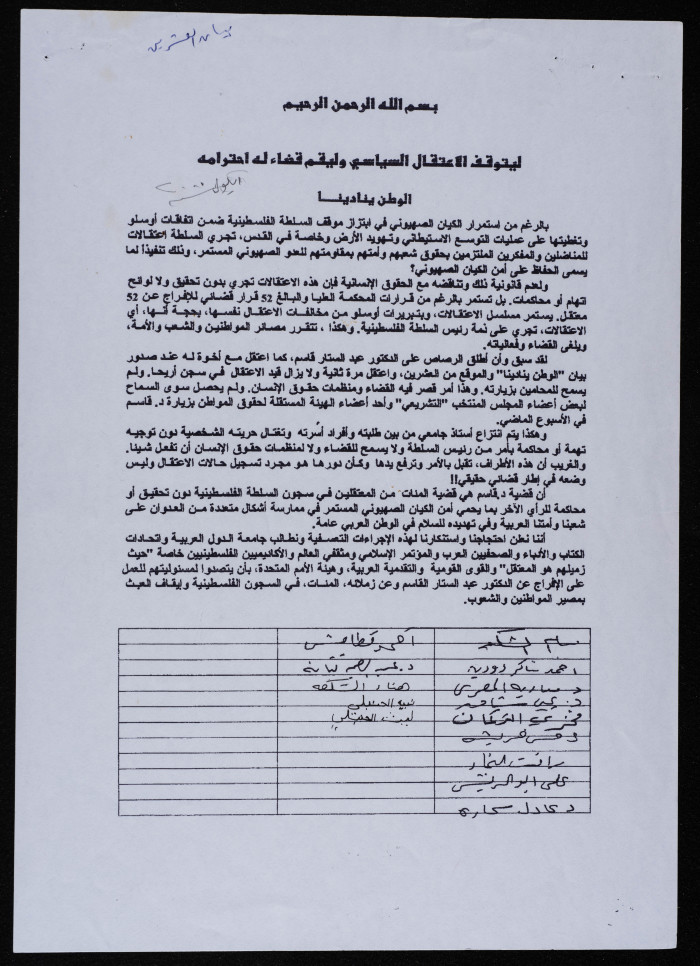 بيان العشرين
بسم الله الرحمن الرحيم
ليتوقف الاعتقال السياسي وليقم قضاء له احترامه
الوطن ينادينا
بالرغم من استمرار الكيان الصهيوني في ابتزاز موقف السلطة الفلسطينية ضمن اتفاقات أوسلو
وتغطيتها على عمليات التوسع الاستيطاني وتهويد الأرض وخاصة في القدس، تجري السلطة اعتقالات
للمناضلين والمفكرين الملتزمين بحقوق شعبهم وأمتهم بمقاومتهم للعدو الصهيوني المستمر، وذلك تنفيذاً لما
يسمى الحفاظ على أمن الكيان الصهيوني؟
ولعدم قانونية ذلك وتناقضه مع الحقوق الإنسانية فإن هذه الاعتقالات تجري بدون تحقيق ولا لوائح
اتهام أو محاكمات. بل تستمر بالرغم من قرارات المحكمة العليا والبالغ 52 قرار قضائي للإفراج عن 52
معتقل. يستمر مسلسل الاعتقالات، وبتبريرات أوسلو من مخالفات الاعتقال نفسها، بحجة أنها، أي
الاعتقالات، تجري على ذمة رئيس السلطة الفلسطينية. وهكذا، تتقرر مصائر المواطنين والشعب والأمة،
ويلغى القضاء وفعالياته.
لقد سبق وأن أطلق الرصاص على الدكتور عبد الستار قاسم، كما اعتقل مع أخوة له عند صدور
بيان "الوطن ينادينا" والموقع من العشرين، واعتقل مرة ثانية ولا يزال قيد الاعتقال في سجن أريحا. ولم
يسمح للمحامين بزيارته. وهذا أمر قصر فيه القضاء ومنظمات حقوق الإنسان. ولم يحصل سوى السماح
لبعض أعضاء المجلس المنتخب "التشريعي" وأحد أعضاء الهيئة المستقلة لحقوق المواطن بزيارة د. قاسم
في الأسبوع الماضي.
وهكذا يتم انتزاع أستاذ جامعي من بين طلبته وأفراد أسرته وتغتال حريته الشخصية دون توجيه
تهمة أو محاكمة بأمر من رئيس السلطة ولا يسمح للقضاء ولا لمنظمات حقوق الإنسان أن تفعل شيئا.
والغريب أن هذه الأطراف، تقبل بالأمر وترفع يدها وكأن دورها هو مجرد تسجيل حالات الاعتقال وليس
وضعه في إطار قضائي حقيقي!!
أن قضية د.قاسم هي قضية المئات من المعتقلين في سجون السلطة الفلسطينية دون تحقيق أو
محاكمة للرأي الآخر بما يحمي أمن الكيان الصهيوني المستمر في ممارسة أشكال متعددة من العدوان على
شعبنا وأمتنا العربية وفي تهديده للسلام في الوطن العربي عامة.
أننا نعلن احتجاجنا واستنكارنا لهذه الإجراءات التعسفية ونطالب جامعة الدول العربية واتحادات
الكتاب والأدباء والصحفيين العرب والمؤتمر الإسلامي ومثقفي العالم والأكاديميين الفلسطينيين خاصة "حيث
زميلهم هو المعتقل" والقوى القومية والتقدمية العربية، وهيئة الأمم المتحدة، بأن يتصدوا لمسئوليتهم للعمل
على الإفراج عن الدكتور عبد الستار القاسم وعن زملائه، المئات، في السجون الفلسطينية وإيقاف العبث
بمصير المواطنين والشعوب.
احمد قطامش
احمد شاكر دودين
د.
د.
فخري التركمان
رأفت النجار
د عادل سمارة